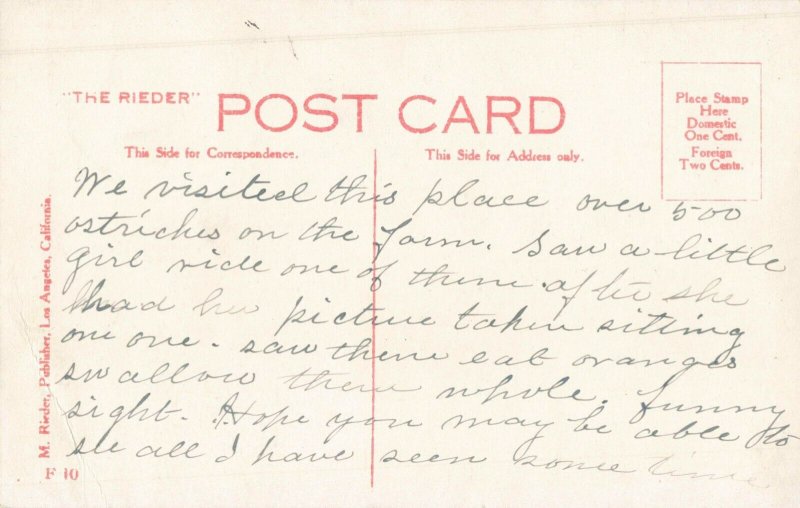 "THE RIEDER" POST CARD
Place Stamp
Here
Domestic
One Cent.
Foreign
Two Cents.
This Side for Correspondence.
This Side for Address only.
We visited this place over 500
ostriches on the farm. Saw a little
girl ride one of them. after she
had her picture taken sitting
on one. saw them eat oranges
swallow them whole. funny
sight. Hope you may be able to
see all I have seen some time
M. Rieder, Publisher, Los Angeles, California.
F 10